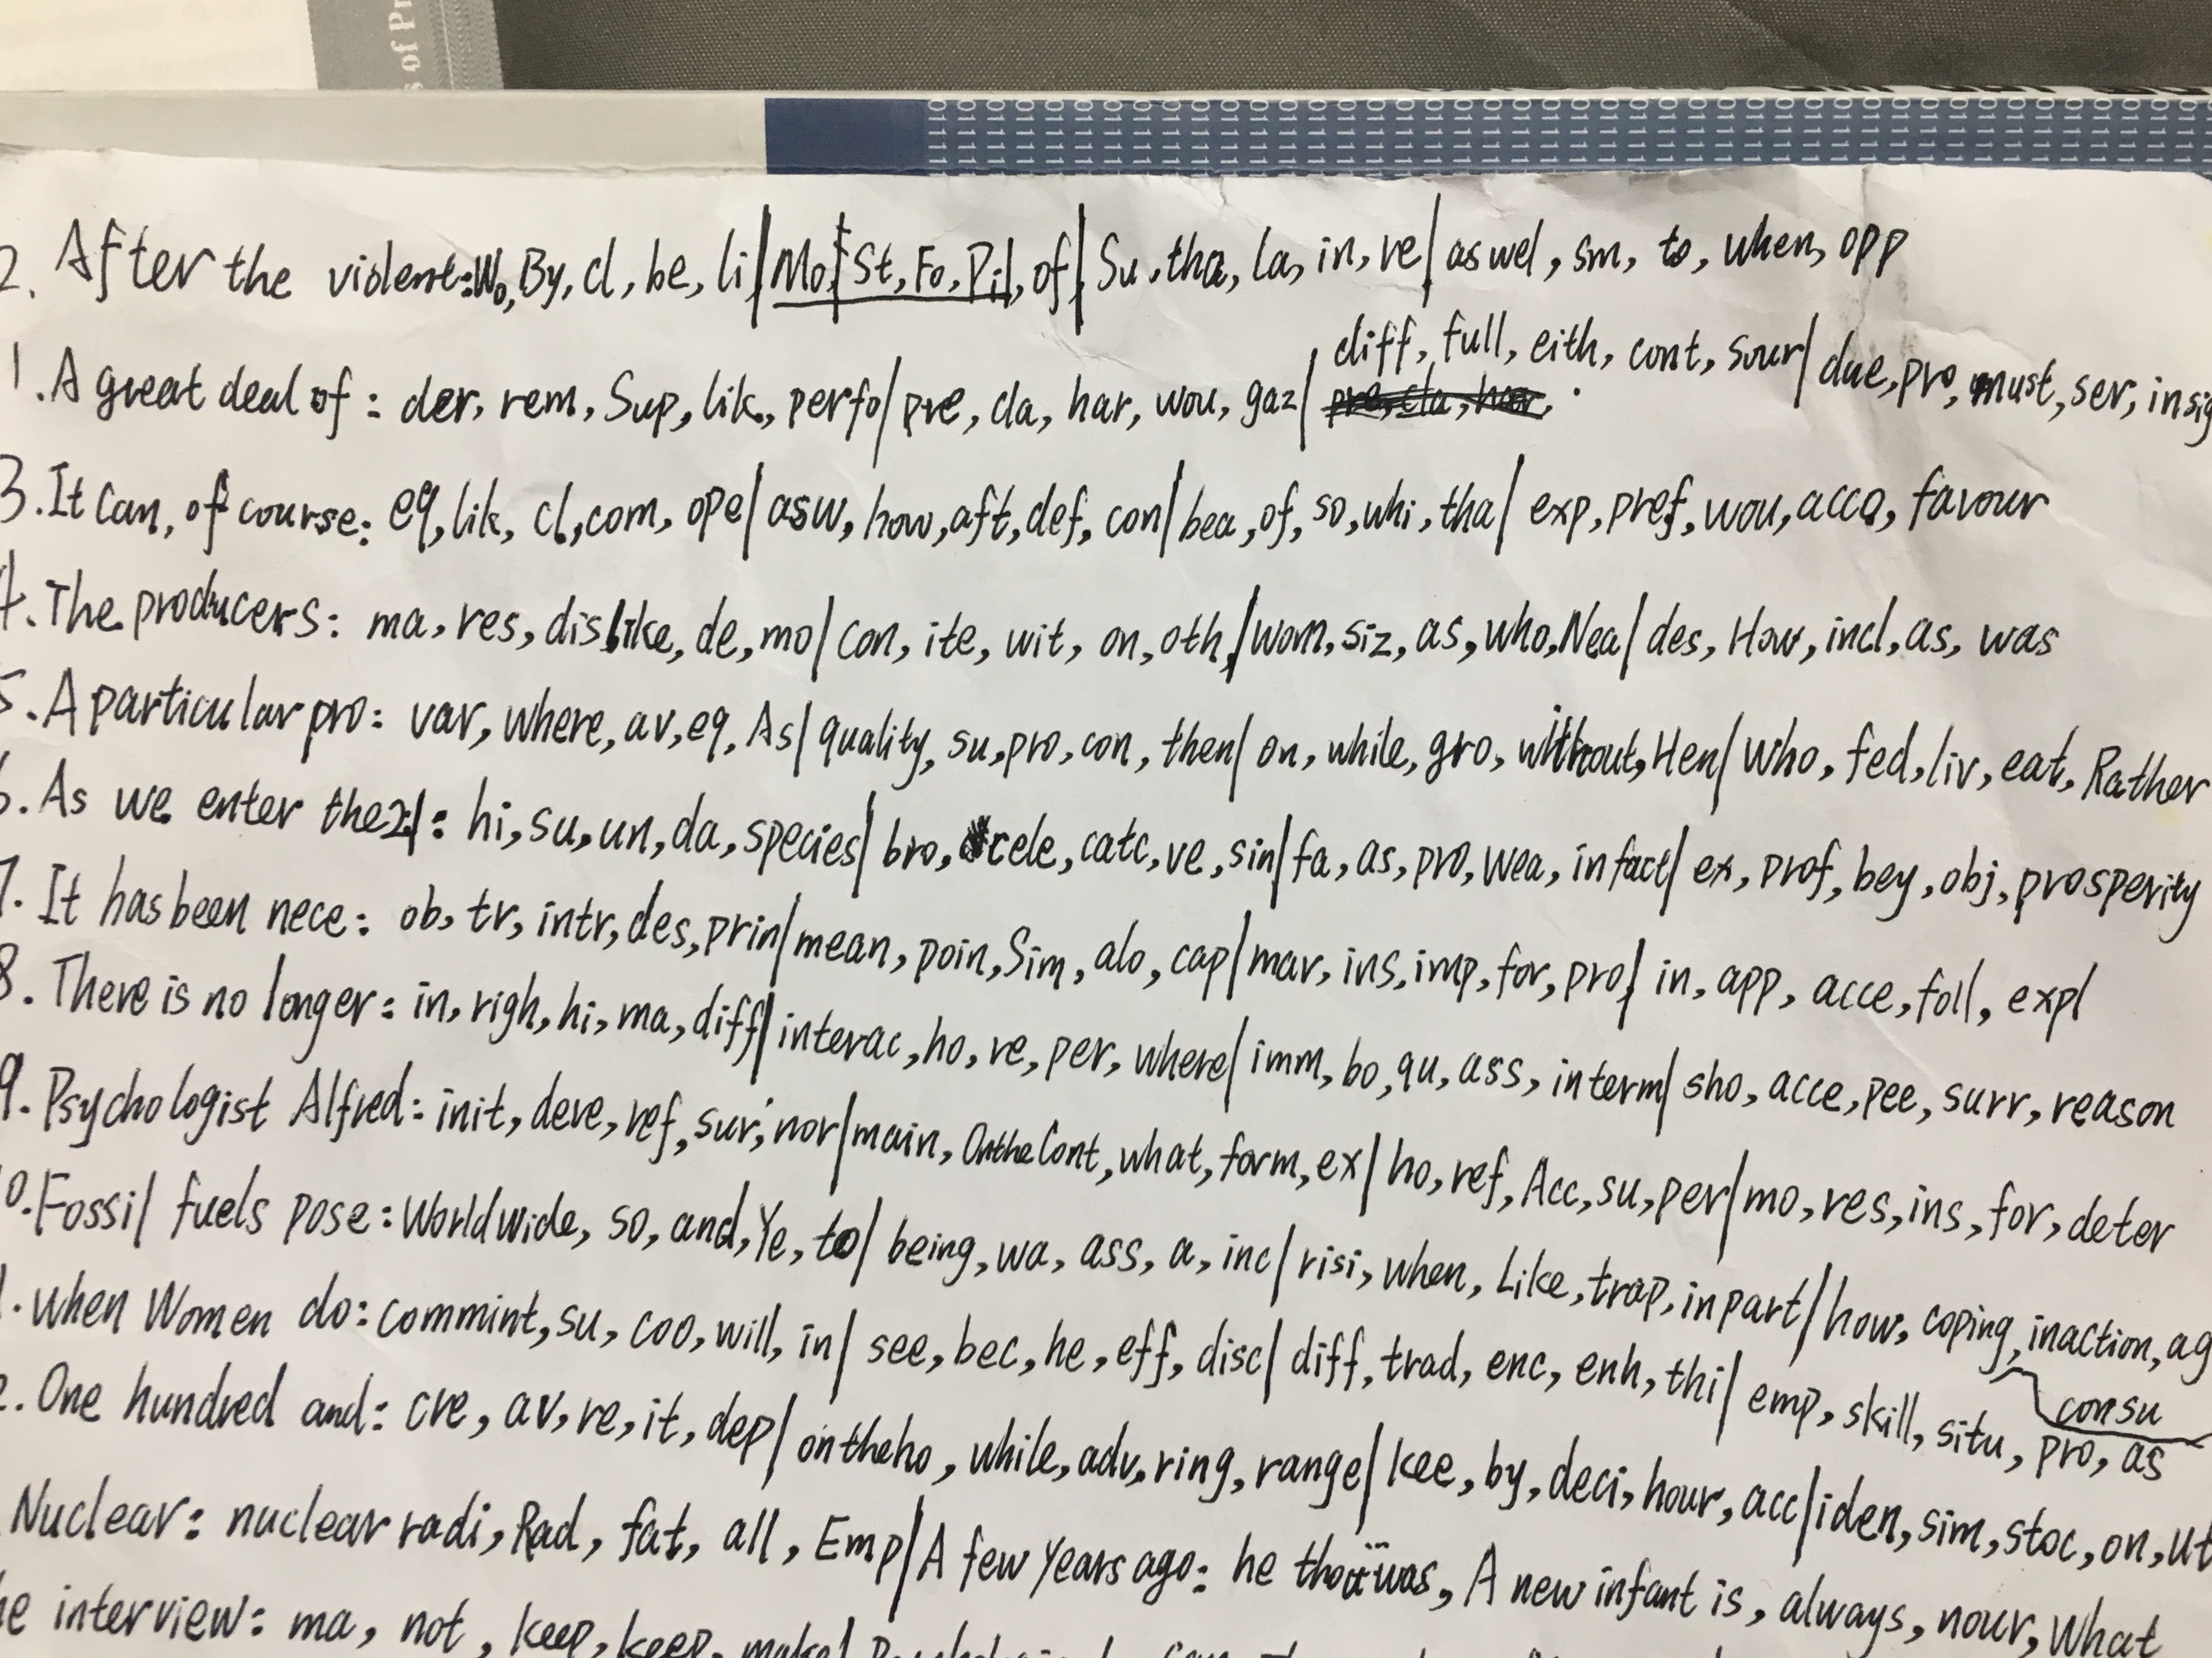 s of Pr
2. After the violent: Wo, By, cl, be, li/ Mo, St, Fo, Pil, of/ Su, tha, la, in, re/ aswel, sm, to, when, opp
1. A great deal of: der, rem, Sup, lik, perfo/ pre, cla, har, wou, gaz/ diff, full, eith, cont, sour/ due, pro, must, ser, insig
pre, cla, har,
3. It can, of course: eq, lik, cl, com, ope/ asw, how, aft, def, con/ bea, of, so, whi, tha/ exp, pref, wou, acco, favour
4. The producers: ma, res, dislike, de, mo/ con, ite, wit, on, oth,/ wom, siz, as, who, Nea/ des, How, incl, as, was
5. A particular pro: var, where, av, eq, As/ quality, su, pro, con, then/ on, while, gro, without, Hen/ who, fed, liv, eat, Rather
6. As we enter the 21: hi, su, un, da, species/ bro, cele, catc, ve, sin/ fa, as, pro, wea, in fact/ ex, prof, bey, obj, prosperity
7. It has been nece: ob, tr, intr, des, prin/ mean, poin, Sim, alo, cap/ mar, ins, imp, for, pro/ in, app, acce, foll, expl
8. There is no longer: in, righ, hi, ma, diff/ interac, ho, re, per, where/ imm, bo, qu, ass, interm/ sho, acce, pee, surr, reason
9. Psychologist Alfred: init, deve, ref, sur, nor/ main, On the Cont, what, form, ex/ ho, ref, Acc, su, per/ mo, res, ins, for, deter
0. Fossil fuels pose: Worldwide, so, and, Ye, to/ being, wa, ass, a, inc/ risi, when, Like, trap, in part/ how, coping, inaction, ag
consu
1. when Women do: commint, su, coo, will, in/ see, bec, he, eff, disc/ diff, trad, enc, enh, thi/ emp, skill, situ, pro, as
2. One hundred and: cre, av, re, it, dep/ ontheho, while, adv, ring, range/ kee, by, deci, hour, acc/ iden, sim, stoc, on, ut
Nuclear: nuclear radi, Rad, fat, all, Emp/ A few years ago: he was, A new infant is, always, nour, What
he interview: ma, not, keep, keep, make/